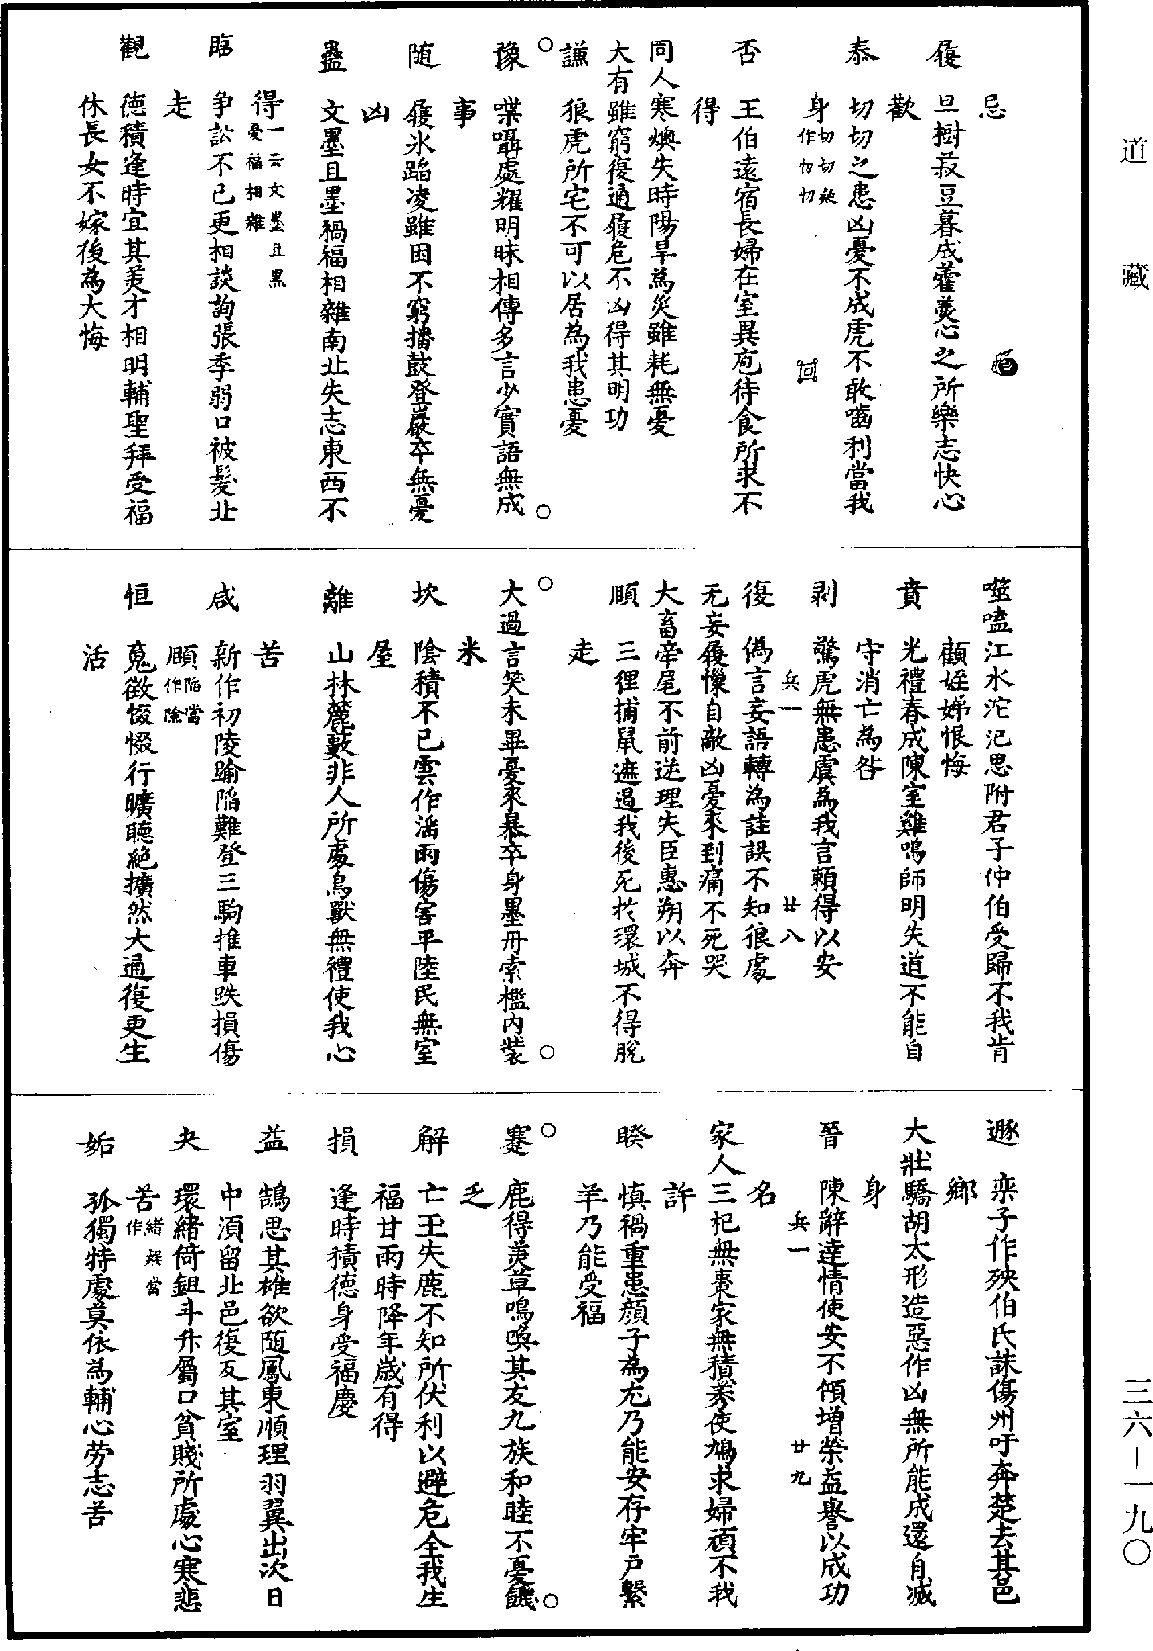 道藏
忌
履　旦樹菽豆暮成藿羹心之所樂志快心
歡
泰　切切之患凶憂不成虎不敢嚙利當我
身切切疑作切切
否　王伯遠宿長婦在室異庖待食所求不
得
同人寒燠失時陽旱為災雖耗無憂
大有雖窮復通履危不凶得其明功
謙　狼虎所宅不可以居為我患憂
豫　喋囁處耀明昧相傳多言少實語無成
事
隨　履氷蹈凌雖困不窮播鼓登巖卒無憂
凶
蠱　文墨且墨禍福相雜南北失志東西不
得一云文墨且黑憂福相雜
臨　争訟不已更相談訽張季弱口被髮北
走
觀　德積逢時宜其羙才相明輔聖拜受福
休長女不嫁後為大悔
噬嗑江水沱汜思附君子仲伯受歸不我肯
顧姪娣恨悔
賁　光禮春成陳室雞鳴師明失道不能自
守消亡為咎
剥　驚虎無患虞為我言頼得以安
兵一　廿八
復　偽言妄語轉為詿誤不知狼處
无妄履懍自敵凶憂來到痛不死哭
大畜帝尾不前送理失臣惠朔以奔
頤　三狸捕鼠遮過我後死扵環城不得脫
走
大過言笑未畢憂來暴卒身墨丹索檻内裝
米
坎　陰積不已雲作滛雨傷害平陸民無室
屋
離　山林麓藪非人所處鳥獸無禮使我心
苦
咸　新作初陵踰陷難登三駒推車跌損傷
頤陷當作陰
恒　蒐微惙惙行曠聴絶擴然大通復更生
活
遯　栾子作殃伯氏誅傷州吁奔楚去其邑
鄉
大壯驕胡太形造惡作凶無所能成還自滅
身
晉　陳辭達情使安不傾增榮益譽以成功
名
兵一　廿九
家人三杞無棗家無積莠使鳩求婦頑不我
許
睽　慎禍重患顔子為尤乃能安存牢户繫
羊乃能受福
蹇　鹿得羙草鳴喚其友九族和睦不憂饑
乏
解　亡王失鹿不知所伏利以避危全我生
福甘雨時降年歲有得
損　逢時積德身受福慶
益　鵠思其雄欲随鳳東順理羽翼出次日
中湏留北邑復反其室
夬　環緒倚鉏斗升屬口貧賤所處心寒悲
苦緒疑當作
姤　孤獨特處莫依為輔心劳志苦
三六—一九〇